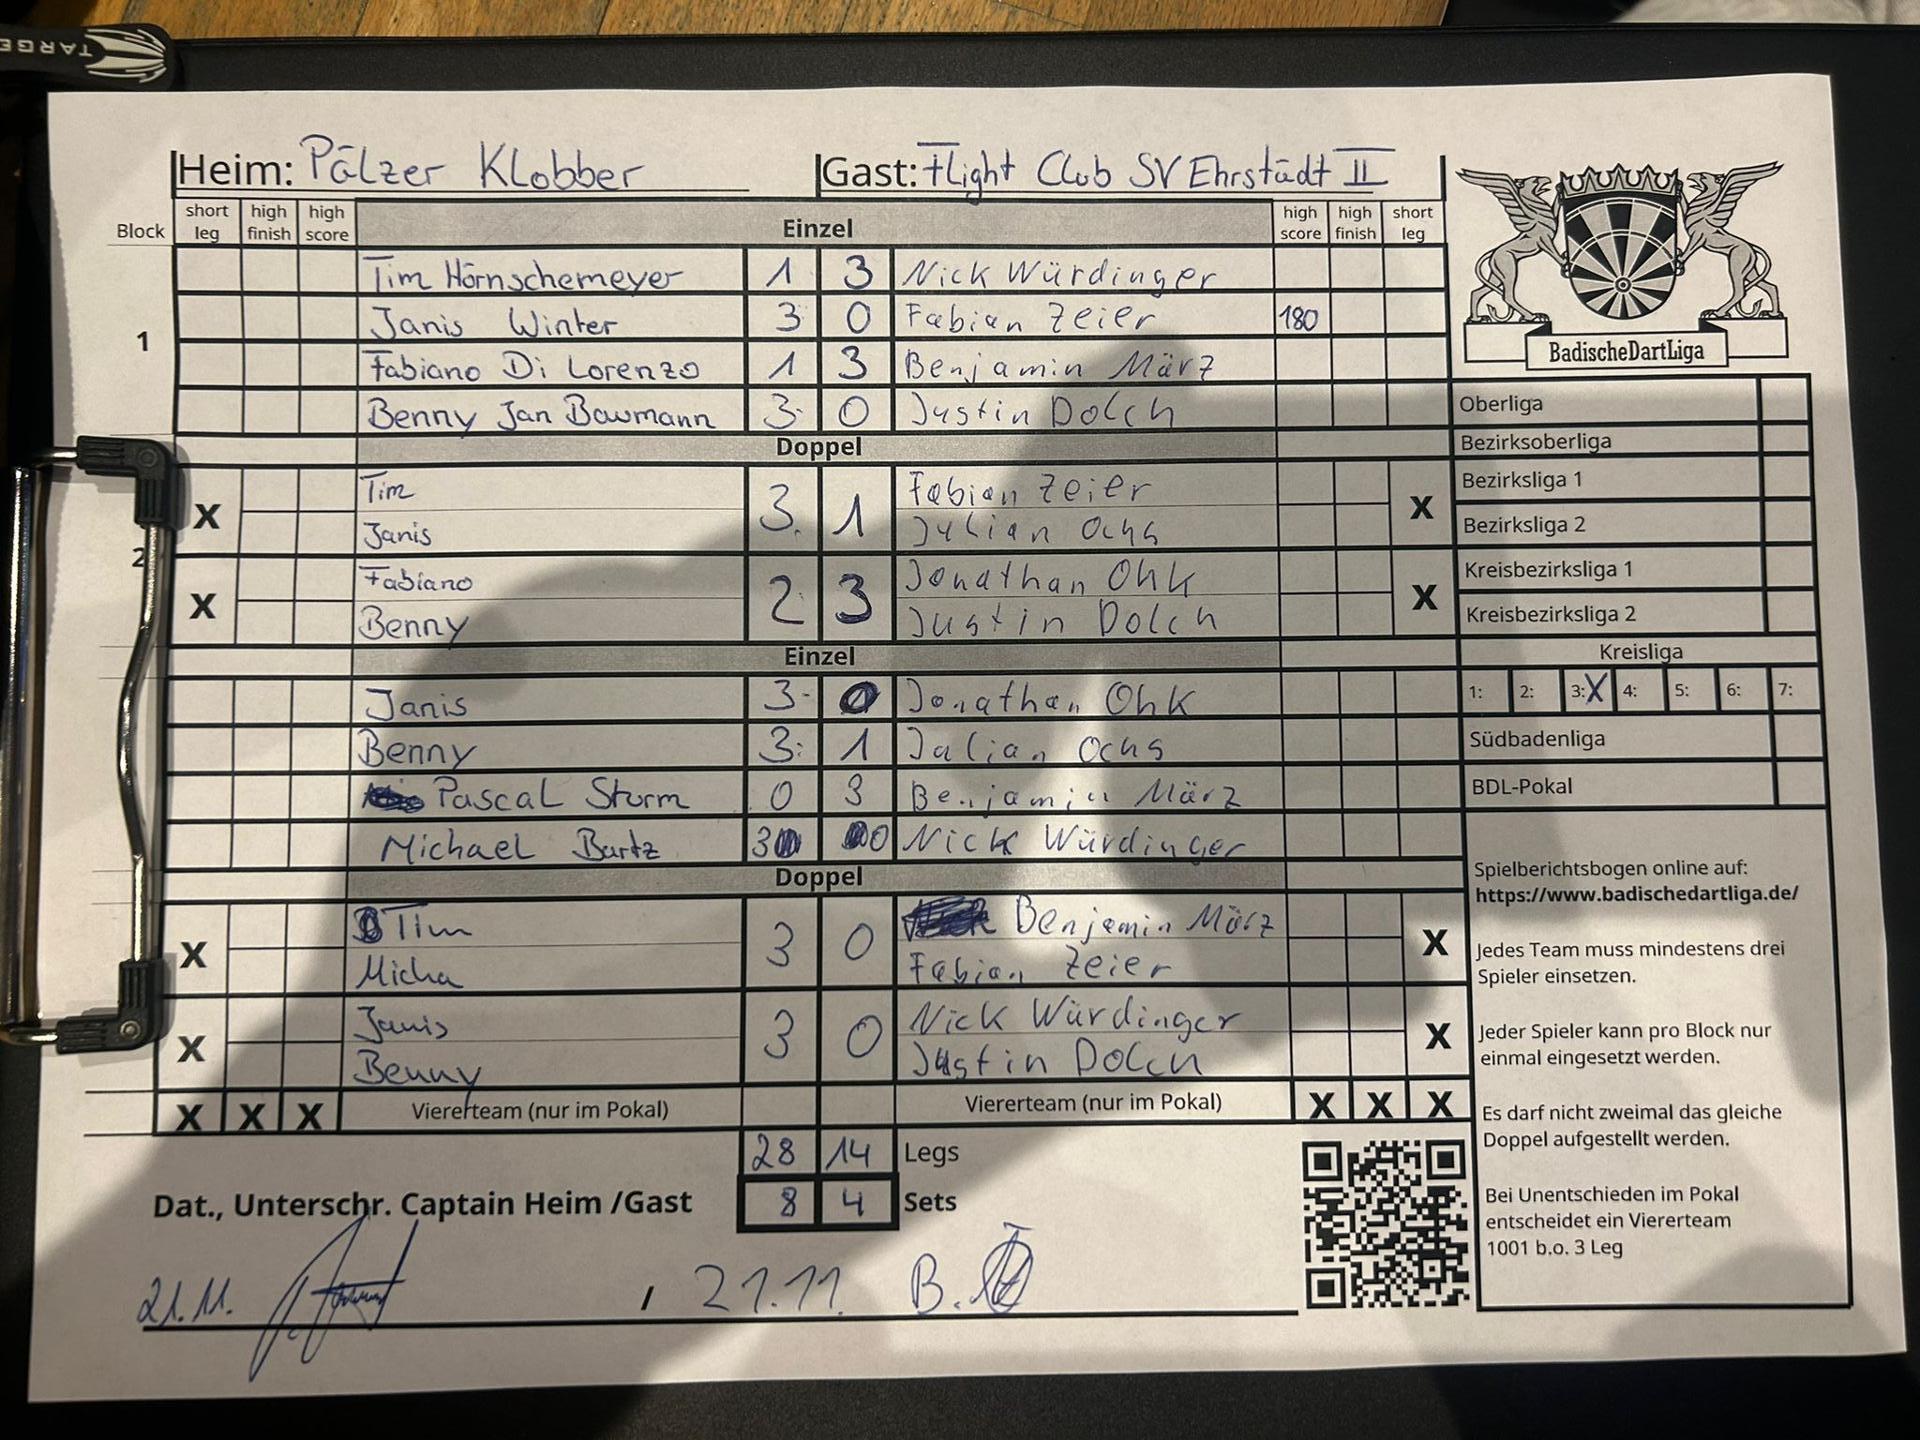 TARGE
Heim: Pälzer Klobber Gast: Flight Club SV Ehrstädt II
Block short leg high finish high score Einzel high score high finish short leg
1
Tim Hörnschemeyer 1 3 Nick Würdinger
Janis Winter 3 0 Fabian Zeier 180
Fabiano Di Lorenzo 1 3 Benjamin März
Benny Jan Baumann 3 0 Justin Dolch
Doppel
2
X Tim 3 1 Fabian Zeier X
Janis Julian Ochs
X Fabiano 2 3 Jonathan Ohk X
Benny Justin Dolch
Einzel
Janis 3 0 Jonathan Ohk
Benny 3 1 Julian Ochs
Pascal Sturm 0 3 Benjamin März
Michael Bartz 3 0 Nick Würdinger
Doppel
X Tim 3 0 Benjamin März X
Micha Fabian Zeier
X Janis 3 0 Nick Würdinger X
Benny Justin Dolch
X X X Viererteam (nur im Pokal) Viererteam (nur im Pokal) X X X
28 14 Legs
Dat., Unterschr. Captain Heim /Gast 8 4 Sets
21.11. / 21.11. B.
BadischeDartLiga
Oberliga
Bezirksoberliga
Bezirksliga 1
Bezirksliga 2
Kreisbezirksliga 1
Kreisbezirksliga 2
Kreisliga
1: 2: 3: X 4: 5: 6: 7:
Südbadenliga
BDL-Pokal
Spielberichtsbogen online auf:
https://www.badischedartliga.de/
Jedes Team muss mindestens drei
Spieler einsetzen.
Jeder Spieler kann pro Block nur
einmal eingesetzt werden.
Es darf nicht zweimal das gleiche
Doppel aufgestellt werden.
Bei Unentschieden im Pokal
entscheidet ein Viererteam
1001 b.o. 3 Leg